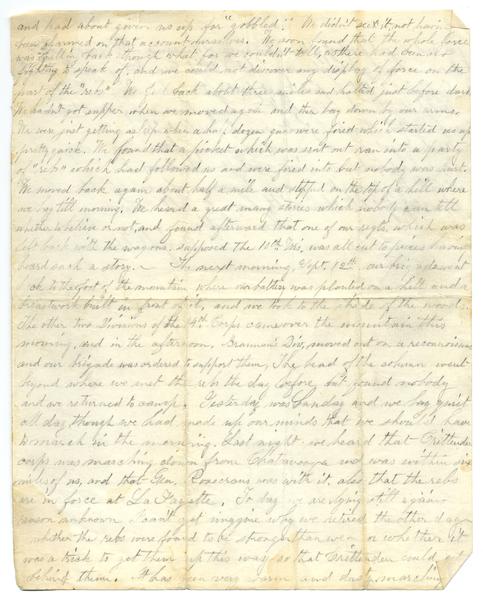 and had about given us up for "gobbled". We didn't see it, not having
been alarmed on that account ourselves. We soon found that the whole force
was falling back though what for we couldn't tell, as there had been no
fighting to speak of, and we could not discover any display of force on the
part of the "rebs". We fell back about three miles and halted just before dark.
We hadn't got supper when we moved again and then lay down by our arms.
We were just getting asleep when a half dozen guns were fired which started us up
pretty quick. We found that a picket which was sent out ran into a party
of "rebs" which had followed us and were fired into but nobody was hurt.
We moved back again about half a mile and stopped on the top of a hill where
we lay till morning. We heard a great many stories which nobody can tell
whether to believe or not, and found afterward that one of our regts. which was
left back with the wagons, supposed the 10th was all cut to pieces having
heard such a story. The next morning, Sept. 12th our brigade went
back to the foot of the mountain where our battery was planted on a hill and a
breastwork built in front of it, and we took to the shade of the woods.
The other two Divisions of the Corps came over the mountain this
morning, and in the afternoon, Brannan's Div. moved out on a reconnoisance
and our brigade was ordered to support them. The head of the column went
beyond where we met the rebs the day before, but found nobody
and we returned to camp. Yesterday was Sunday and we lay quiet
all day though we had made up our minds that we should have
to march in the morning. Last night we heard that Crittenden
corps was marching down from Chatanooga and was within six
miles of us, and that Gen. Rosecrans was with it, also that the rebs
are in force at La Fayette. To day we are lying still again
reason unknown. I can't get imagine why we retired the other day
whether the rebs were found to be stronger than we or whether it
was a trick to get them up this way so that Crittenden could get
behind them. It has been very warm and dusty marching